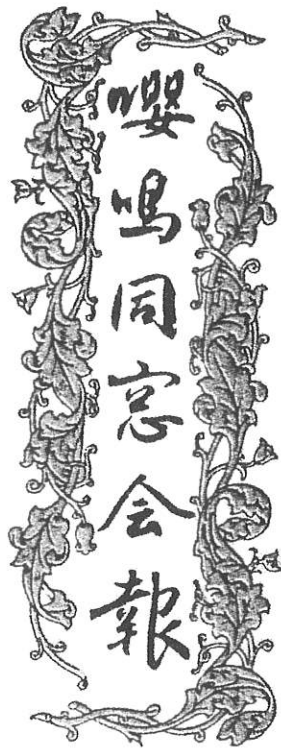 嚶鳴同窓会報